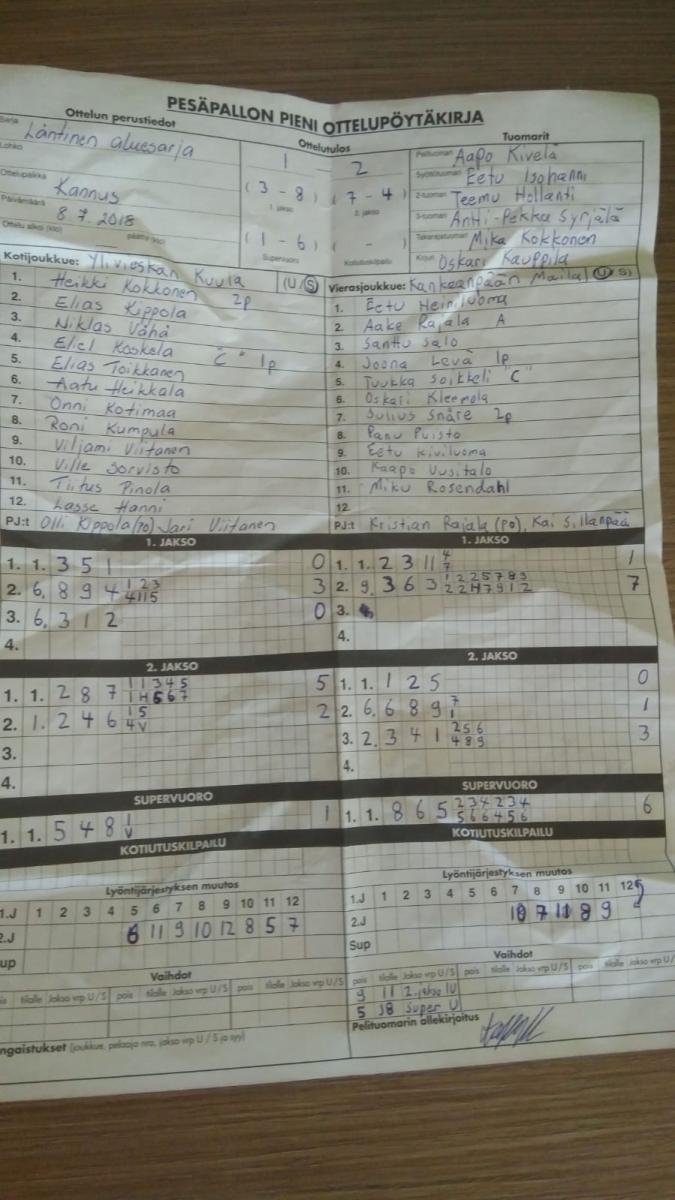 PESÄPALLON PIENI OTTELUPÖYTÄKIRJA
Ottelun perustiedot
Ottelutulos
Tuomarit
Sarja Läntinen aluesarja
Lohko
Ottelupaikka Kannus
Päivämäärä 8.7.2018
Ottelu alkoi (klo) päättyi (klo)
1 - 2
(3 - 8) (7 - 4)
1. jakso 2. jakso
(1 - 6) ( - )
Supervuoro Kotiutuskilpailu
Pelituomari Aapo Kivelä
Syöttötuomari Eetu Isohanni
2-tuomari Teemu Hollanti
3-tuomari Antti-Pekka Syrjälä
Takarajatuomari Mika Kokkonen
Kirjuri Oskari Kauppila
Kotijoukkue: Ylivieskan Kuula (U/S)
1. Heikki Kokkonen 2p
2. Elias Kippola
3. Niklas Vähä
4. Eliel Koskela
5. Elias Toikkanen "C" 1p
6. Aatu Heikkala
7. Onni Kotimaa
8. Roni Kumpula
9. Viljami Viitanen
10. Ville Sorvisto
11. Tiitus Pinola
12. Lasse Hanni
PJ:t Olli Kippola (PO) Jari Viitanen
Vierasjoukkue: Kankaanpään Maila (U/S)
1. Eetu Heiniluoma
2. Aake Rajala A
3. Santtu Salo
4. Joona Levä 1p
5. Tuukka Soikkeli "C"
6. Oskari Kleemola
7. Julius Snåre 2p
8. Panu Puisto
9. Eetu Kiviluoma
10. Kaapo Uusitalo
11. Miku Rosendahl
12.
PJ:t Kristian Rajala (PO), Kai Sillanpää
1. JAKSO
1. 1. 3 5 1 0
2. 6. 8 9 4 1 2 3 3
4 11 5
3. 6. 3 1 2 0
4.
1. JAKSO
1. 1. 2 3 11 4 1
7
2. 9. 3 6 3 1 2 2 5 7 8 3 7
2 2 H 7 9 1 2
3.
4.
2. JAKSO
1. 1. 2 8 7 1 1 3 4 5 5
1 H 5 6 7
2. 1. 2 4 6 1 5 2
4 V
3.
4.
2. JAKSO
1. 1. 1 2 5 0
2. 6. 6 8 9 7 1
1
3. 2. 3 4 1 2 5 6 3
4 8 9
4.
SUPERVUORO
1. 1. 5 4 8 1 1
V
SUPERVUORO
1. 1. 8 6 5 2 3 4 2 3 4 6
5 6 6 4 5 6
KOTIUTUSKILPAILU
KOTIUTUSKILPAILU
Lyöntijärjestyksen muutos
1.J 1 2 3 4 5 6 7 8 9 10 11 12
2.J 6 11 9 10 12 8 5 7
Sup
Lyöntijärjestyksen muutos
1.J 1 2 3 4 5 6 7 8 9 10 11 12
2.J 10 7 11 8 9
Sup
Vaihdot
pois tilalle Jakso vrp U/S pois tilalle Jakso vrp U/S pois tilalle Jakso vrp U/S
Vaihdot
pois tilalle Jakso vrp U/S pois tilalle Jakso vrp U/S pois tilalle Jakso vrp U/S
9 11 2.jakso 1U
5 J8 Super U
Rangaistukset (joukkue, pelaaja nro, jakso vrp U / S ja syy)
Pelituomarin allekirjoitus